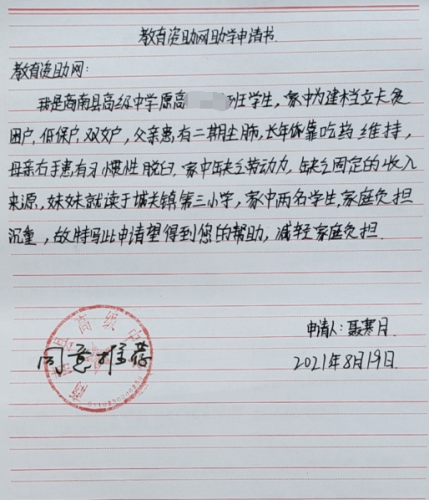 教育资助网助学申请书
教育资助网：
我是商南县高级中学原高 班学生，家中为建档立卡贫
困户，低保户，双女户，父亲患有二期尘肺，长年依靠吃药维持，
母亲右手患有习惯性脱臼，家中缺乏劳动力，缺乏固定的收入
来源，妹妹就读于城关镇第三小学，家中两名学生，家庭负担
沉重，故特写此申请望得到您的帮助，减轻家庭负担.
申请人：聂寒月
2021年8月19日
同意推荐